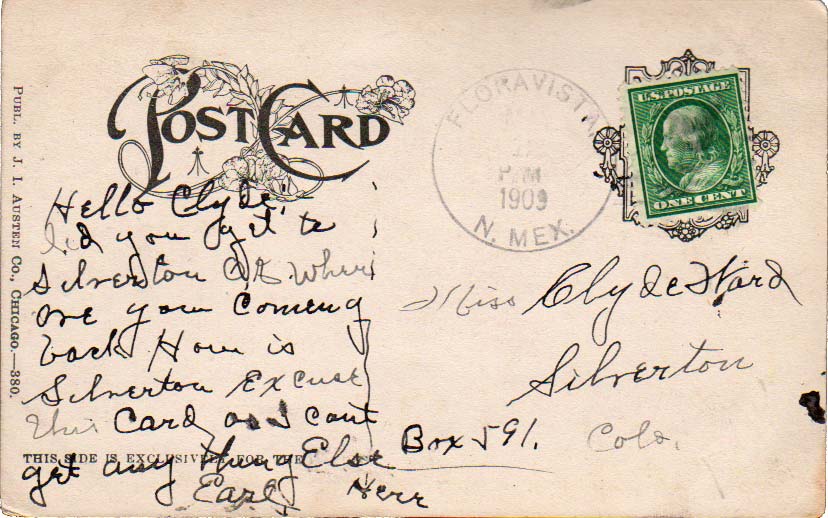 POST CARD
FLORAVISTA
P/M
1909
N. MEX.
U.S. POSTAGE
ONE CENT
PUBL. BY J. I. AUSTEN CO., CHICAGO.—380.
Hello Clyde,
did you get to
Silverton
are you Comeing
back How is
Silverton Excuse
this Card as I cant
get any thing Else
Earl Herr
THIS SIDE IS EXCLUSIVELY FOR THE
Miss Clyde Ward
Silverton
Box 591. Colo.